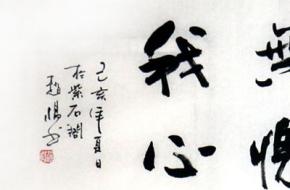 無愧
我心
己亥年夏日
於紫石閣
趙惧书